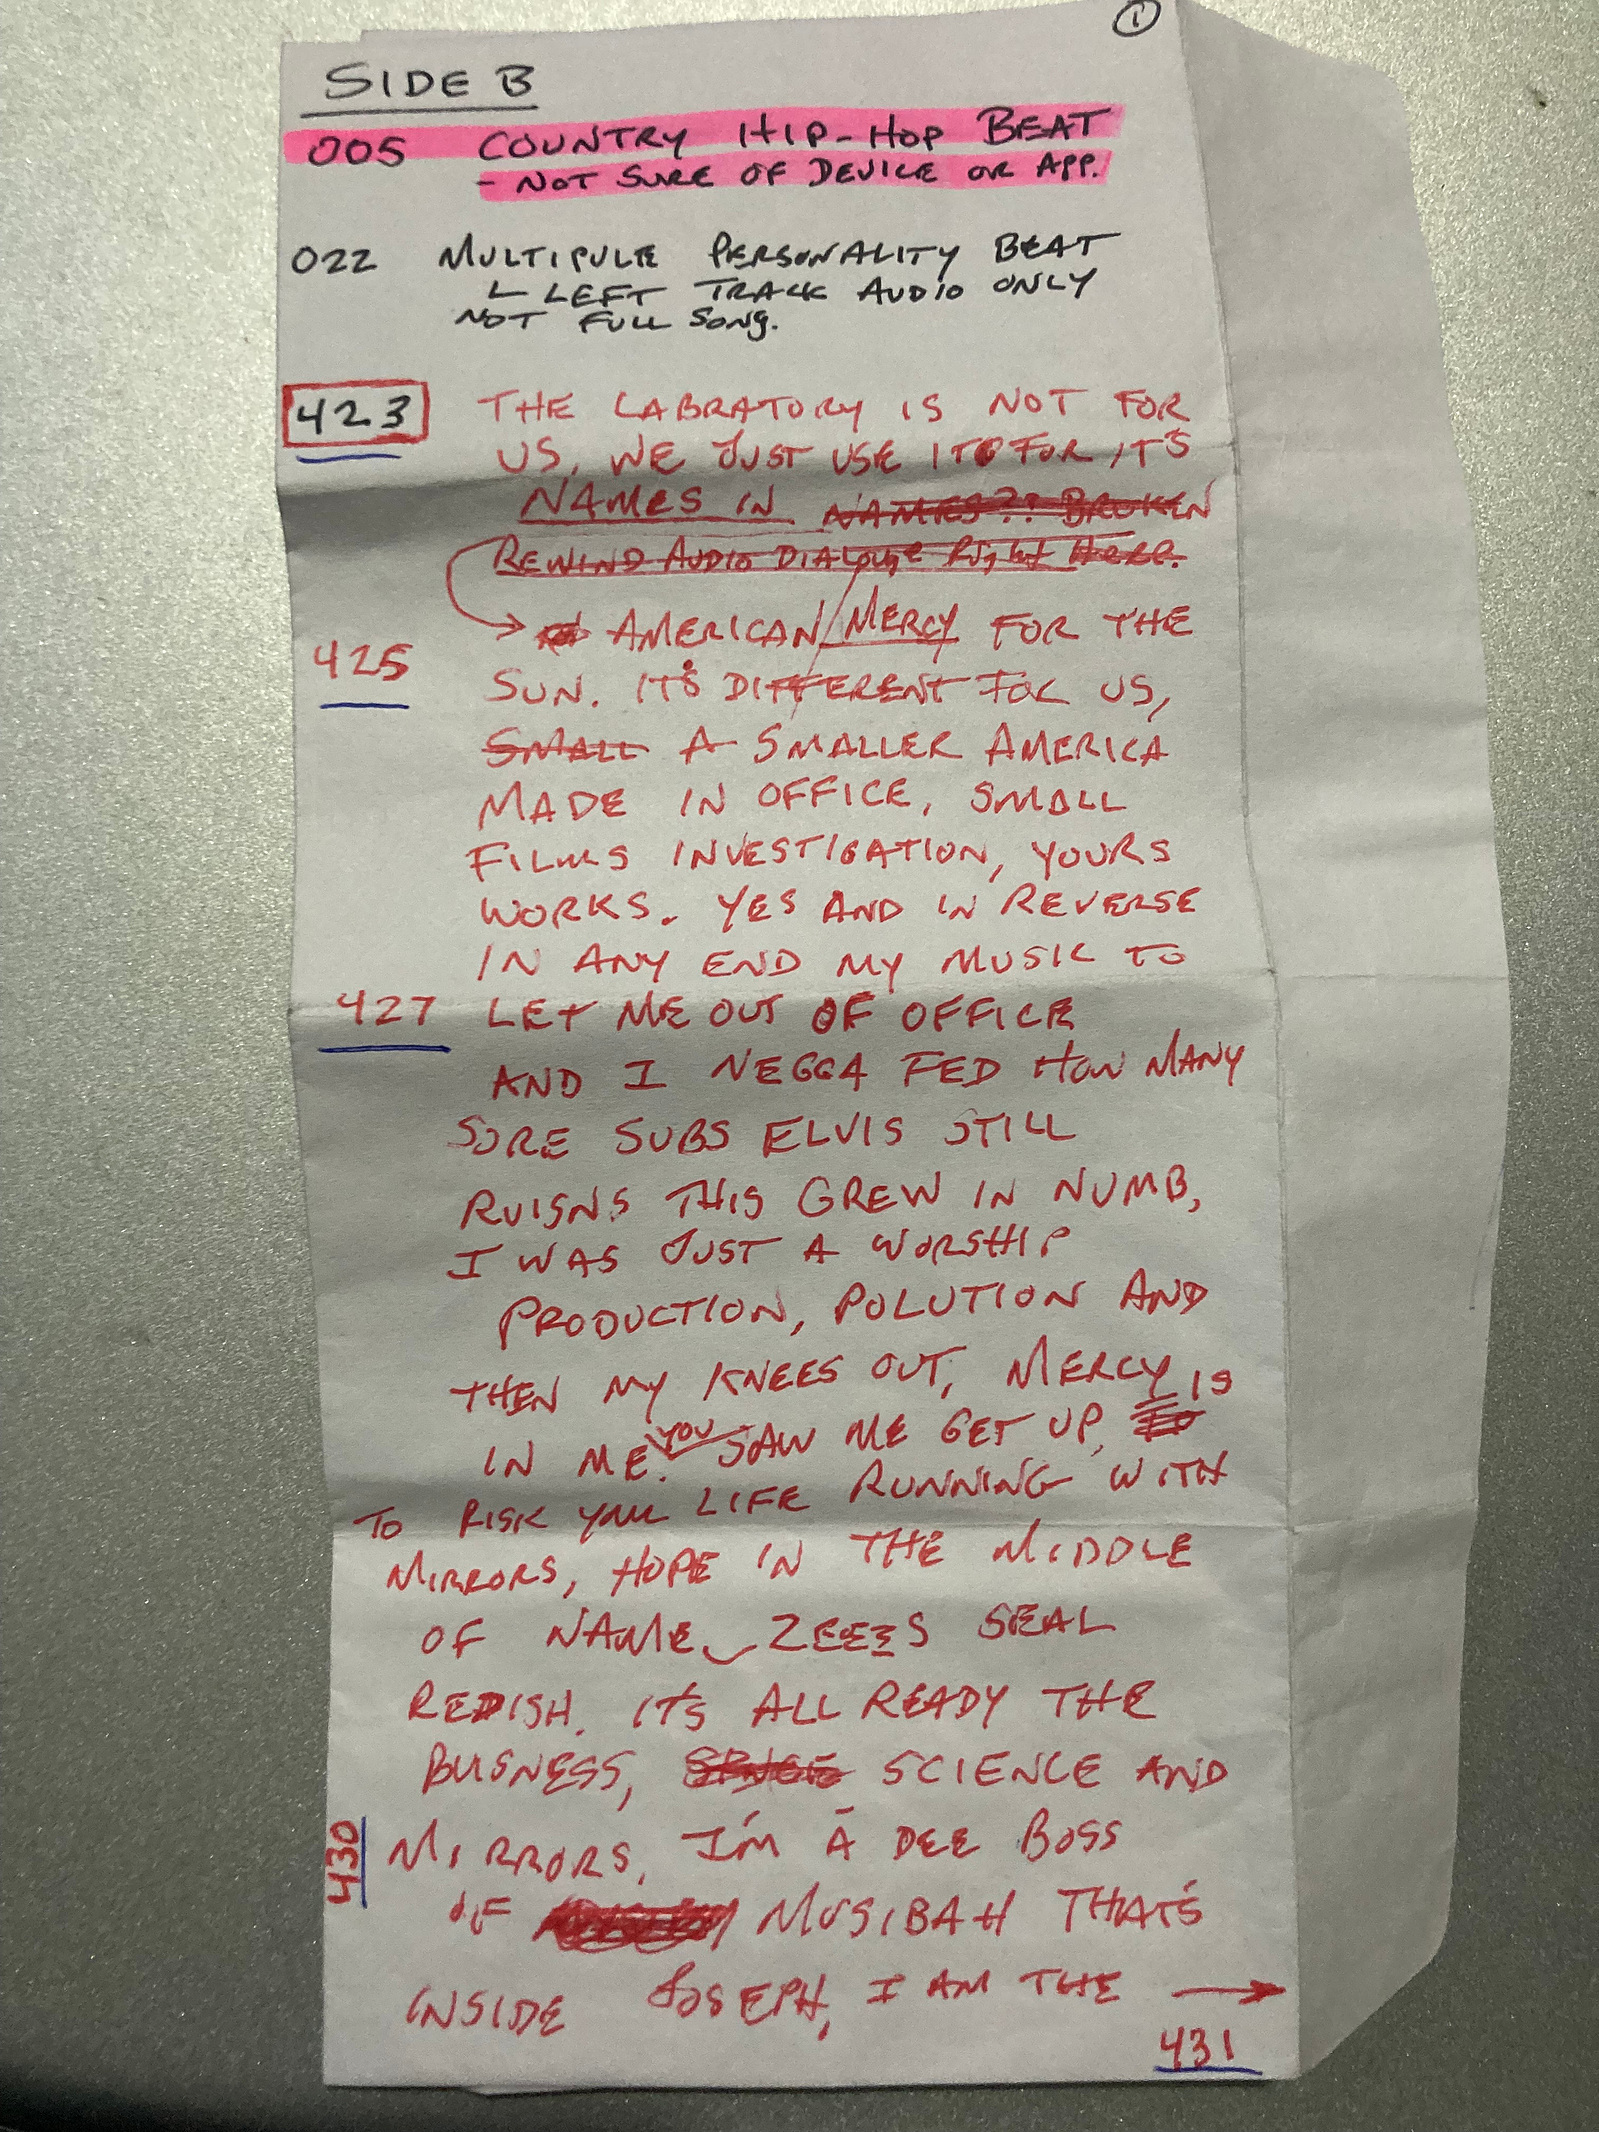 ①
SIDE B
005 COUNTRY HIP-HOP BEAT
- NOT SURE OF DEVICE OR APP.
022 MULTIPULE PERSONALITY BEAT
LEFT TRACK AUDIO ONLY
NOT FULL SONG.
423 THE LABRATORY IS NOT FOR
US, WE JUST USE IT FOR IT'S
NAMES IN NAMES?? BROKEN
REWIND AUDIO DIALOUGE Right Here.
→ AMERICAN/MERCY FOR THE
425 SUN. IT'S DIFFERENT FOR US,
SMALL A SMALLER AMERICA
MADE IN OFFICE, SMALL
FILMS INVESTIGATION, YOURS
WORKS. YES AND IN REVERSE
IN ANY END MY MUSIC TO
427 LET ME OUT OF OFFICE
AND I NEGGA FED HOW MANY
SORE SUBS ELVIS STILL
RUISNS THIS GREW IN NUMB,
I WAS JUST A WORSHIP
PRODUCTION, POLUTION AND
THEN MY KNEES OUT, MERCY IS
IN ME. YOU SAW ME GET UP, TO
TO RISK YOUR LIFE RUNNING WITH
MIRRORS, HOPE IN THE MIDDLE
OF NAME ZEEES SEAL
REDISH. IT'S ALL READY THE
BUISNESS, SCIENCE AND
430 MIRRORS, I'M A DEE BOSS
OF MUSIBAH THAT'S
INSIDE JOSEPH, I AM THE →
431